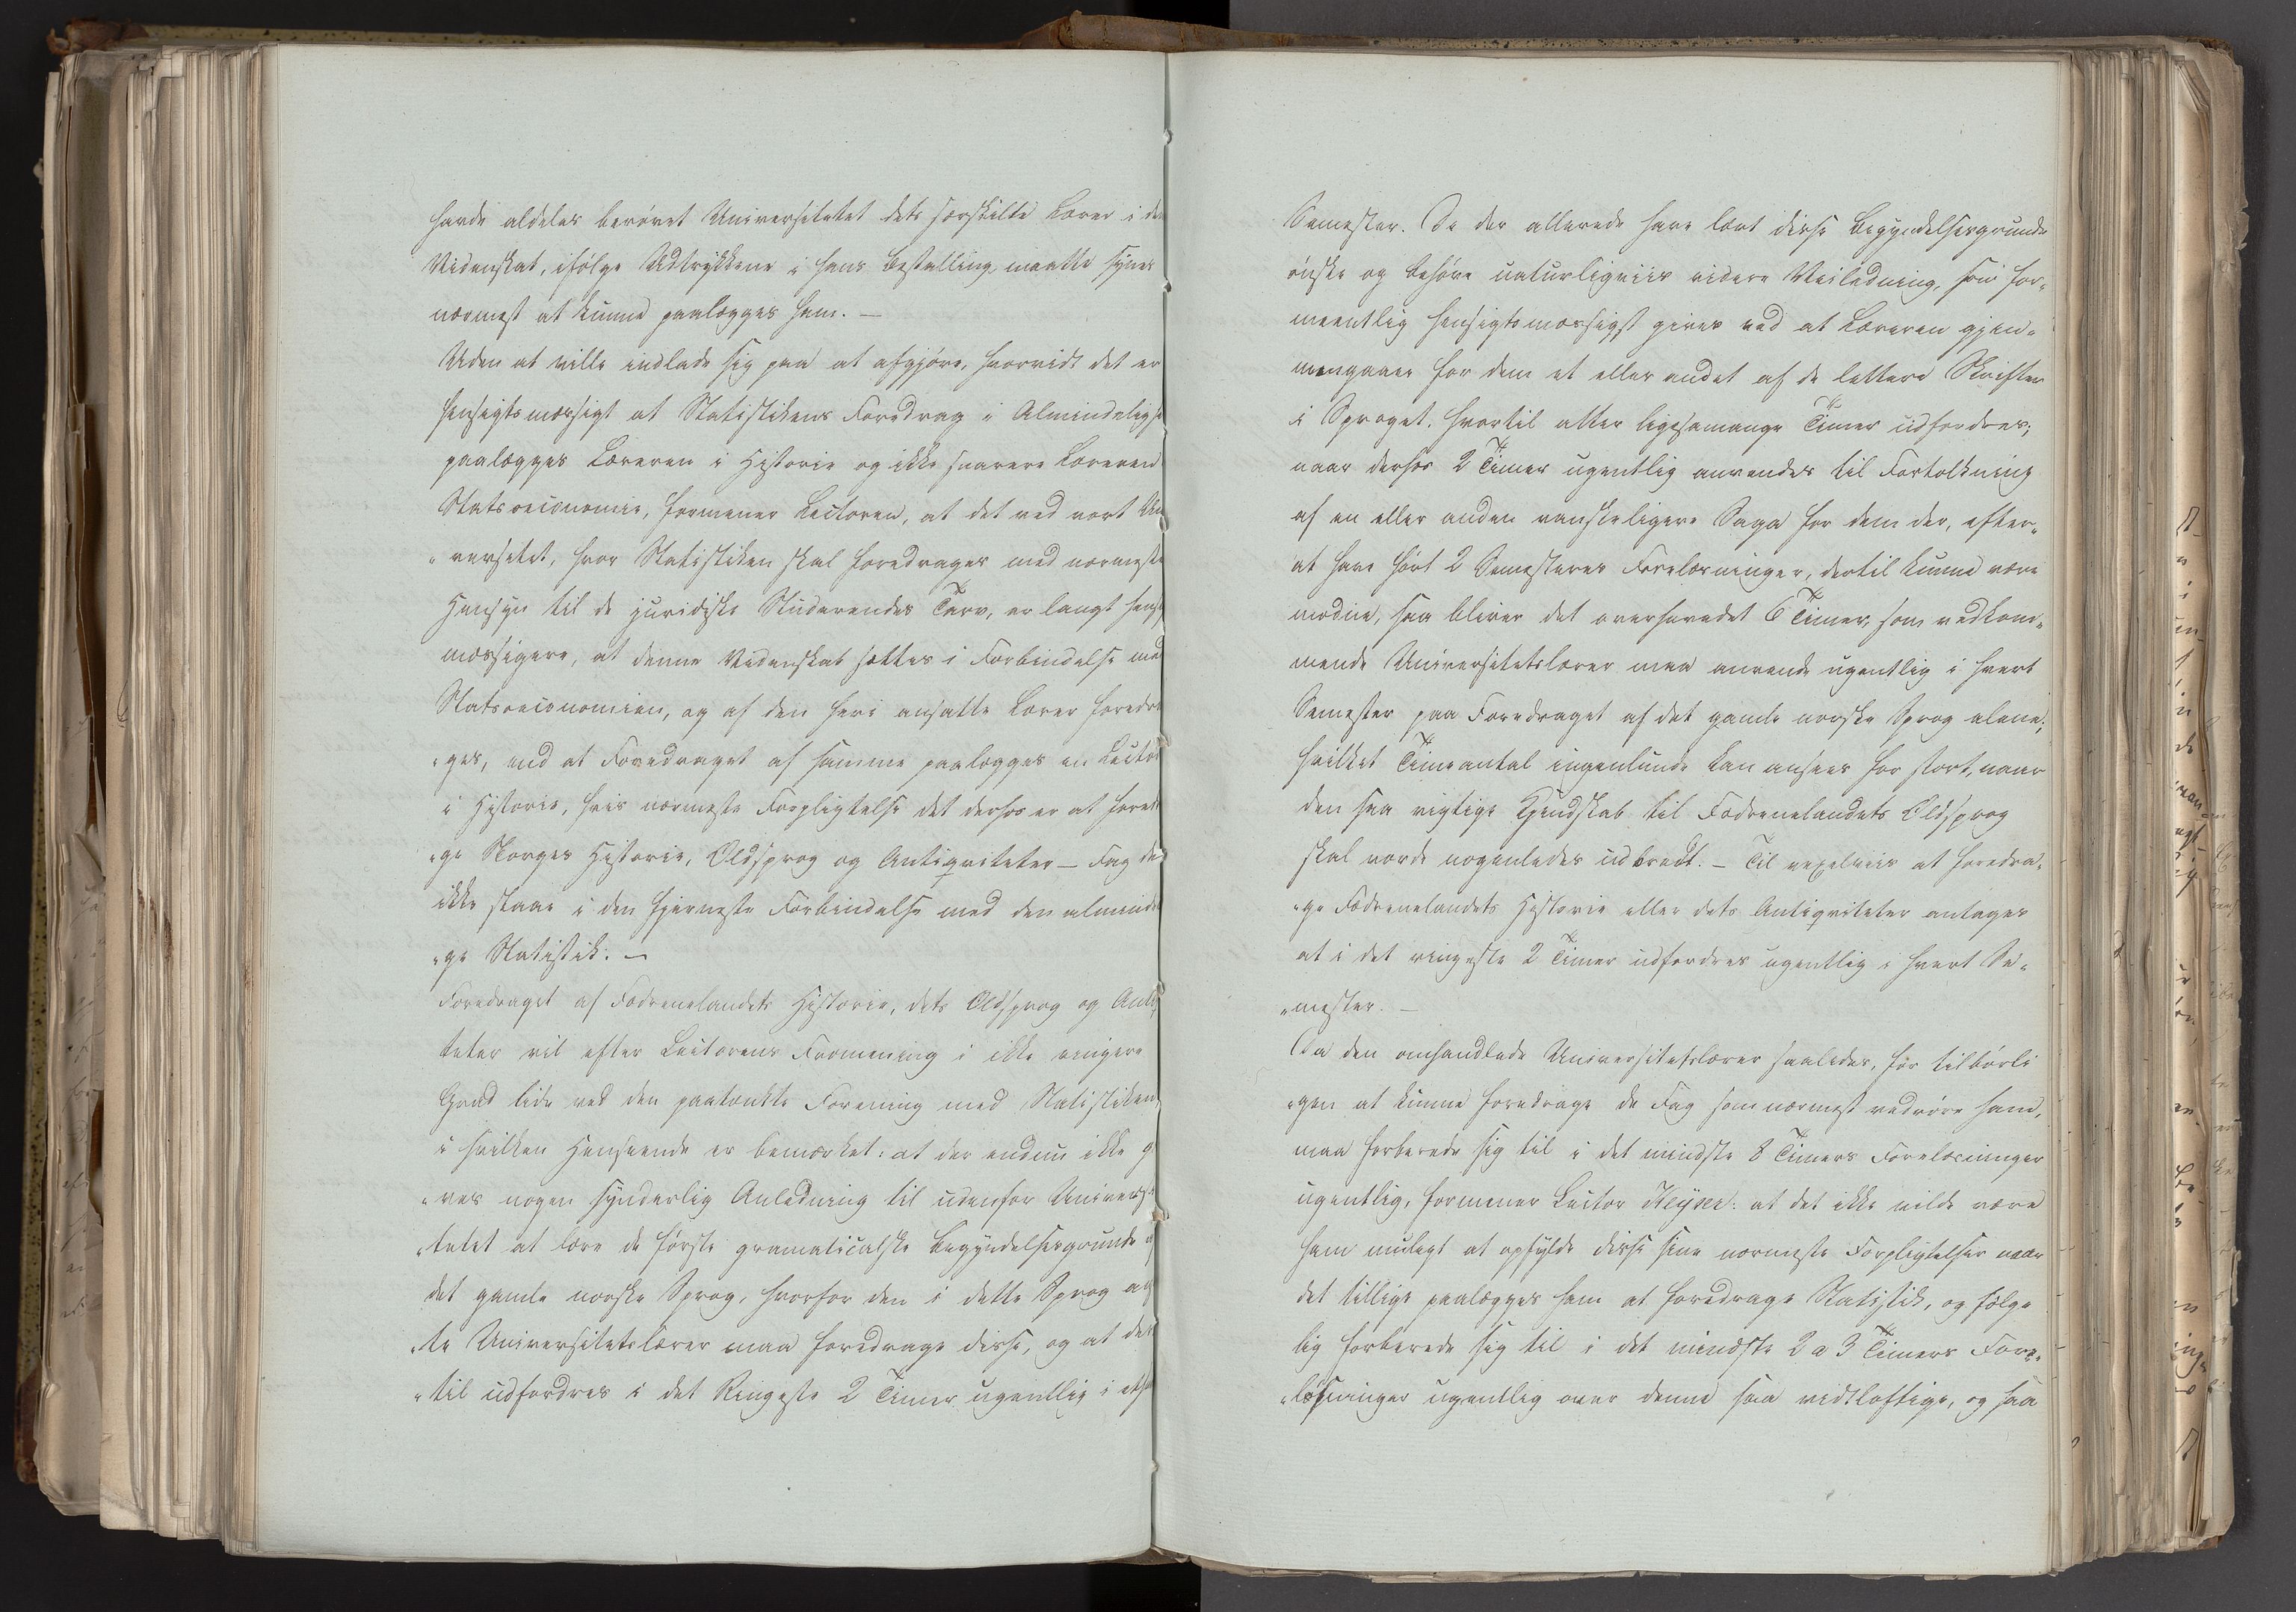 havde aldeles berøvet Universitetet dets særskilte Lærer i den
Videnskab, ifølge Udtrykkene i hans Bestalling maatte synes
nærmest at kunne paalægges ham. —
Uden at ville indlade sig paa at afgjøre, hvorvidt det er
hensigtsmæssigt at Statistikens Foredrag i Almindelighe
paalægges Læreren i Historie og ikke snarere Læreren
Statsoeconomie, formener Lectoren, at det ved vort Un
„versitet, hvor Statistiken skal foredrages med nærmeste
Hensyn til de juridiske Studerendes Tarv, er langt hensigt
mæssigere, at denne Videnskab sættes i Forbindelse med
Statsoeconomien, og af den heri ansatte Lærer foredra
„ges, end at Foredraget af samme paalægges en Lector
i Historie, hvis nærmeste Forpligtelse det derhos er at fored
„ge Norges Historie, Oldsprog og Antiqviteter — Fag der
ikke staae i den fjerneste Forbindelse med den alminde
„ge Statistik. —
Foredraget af Fædrenelandets Historie, dets Oldsprog og Anti
teter vil efter Lectorens Formening i ikke ringere
Grad lide ved den paatænkte Forening med Statistiken
i hvilken Henseende er bemærket: at der endnu ikke g
„ves nogen synderlig Anledning til udenfor Universi
„tetet at lære de første gramaticalske Begyndelsesgrunde
det gamle norske Sprog, hvorfor den i dette Sprog a
„te Universitetslærer maa foredrage disse, og at der
„til udfordres i det Ringeste 2 Timer ugentlig i
Semester. De der allerede have lært disse Begyndelsesgrunde
ønske og behøve naturligviis videre Veiledning, som for„
meentlig hensigtsmæssigst gives ved at Læreren gjen„
nemgaaer for dem et eller andet af de lettere Skrifter
i Sproget, hvortil atter ligesaamange Timer udfordres;
naar derhos 2 Timer ugentlig anvendes til Fortolkning
af en eller anden vanskeligere Saga for dem der, efter„
at have hørt 2 Semesteres Forelæsninger, dertil kunne være
modne, saa bliver det overhovedet 6 Timer, som vedkom„
mende Universitetslærer maa anvende ugentlig i hvert
Semester paa Foredraget af det gamle norske Sprog alene,
hvilket Timeantal ingenlunde kan ansees for stort, naar
den saa vigtige Kjendskab til Fædrenelandets Oldsprog
skal vorde nogenledes udbredt. — Til vexelviis at foredra„
„ge Fædrenelandets Historie eller dets Antiqviteter antages
at i det ringeste 2 Timer udfordres ugentlig i hvert Se„
„mester. —
Da den omhandlede Universitetslærer saaledes, for tilbørli
„gen at kunne foredrage de Fag som nærmest vedrøre ham,
maa forberede sig til i det mindste 8 Timers Forelæsninger
ugentlig, formener Lector Keyser: at det ikke vilde være
ham muligt at opfylde disse sine nærmeste Forpligtelser naar
det tillige paalægges ham at foredrage Statistik, og følge
lig forberede sig til i det mindste 2 a 3 Timers Fore„
„læsninger ugentlig over denne saa vidtløftige, og saa